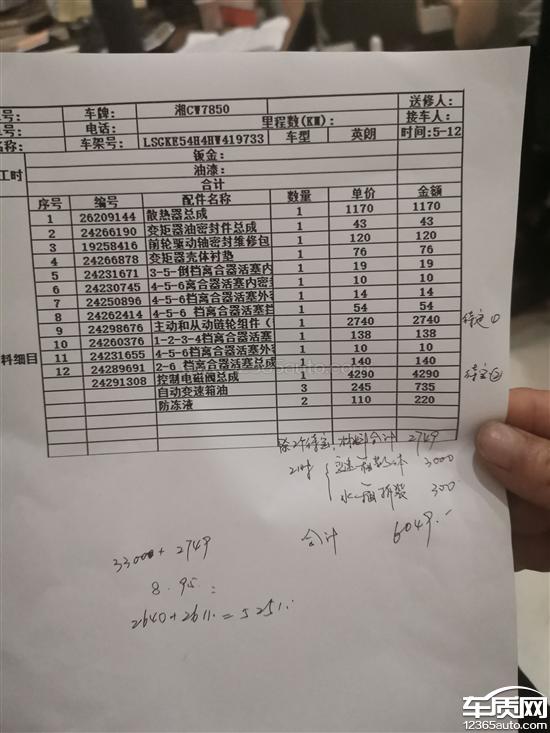 号: 车牌: 湘CW7850 送修人:
号: 电话: 里程数(KM): 接车人:
名称: 车架号: LSGKE54H4HW419733 车型 英朗 时间:5-12
工时 钣金:
油漆:
合计
料细目 序号 编号 配件名称 数量 单价 金额
1 26209144 散热器总成 1 1170 1170
2 24266190 变矩器油密封件总成 1 43 43
3 19258416 前轮驱动轴密封维修包 1 120 120
4 24266878 变矩器壳体衬垫 1 76 76
5 24231671 3-5-倒档离合器活塞内 1 19 19
6 24230745 4-5-6档离合器活塞内密 1 10 10
7 24250896 4-5-6档离合器活塞外密 1 14 14
8 24262414 4-5-6 档离合器活塞挡 1 54 54
9 24298676 主动和从动链轮组件( 1 2740 2740 待定①
10 24260376 1-2-3-4档离合器活塞 1 138 138
11 24231655 4-5-6档离合器活塞外密 1 10 10
12 24289691 2-6 档离合器活塞总成 1 140 140
24291308 控制电磁阀总成 1 4290 4290 待定②
自动变速箱油 3 245 735
防冻液 2 110 220
除2个待定, 材料合计 2749
工时 变速箱解体 3000
水箱拆装 300
合计 6049.-
33000+2749
8.95.
2640+2611.=5251.
车质网
12365auto.com